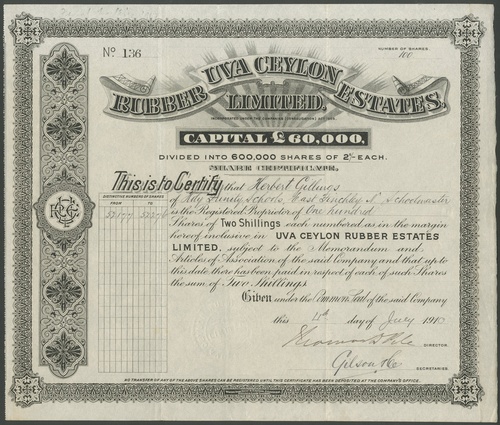 Nº 136
NUMBER OF SHARES.
100
UVA CEYLON
RUBBER ESTATES,
LIMITED,
CAPITAL £60,000,
DIVIDED INTO 600,000 SHARES OF 2/- EACH.
SHARE CERTIFICATE.
This is to Certify that Herbert Gillings
of Holy Trinity Schools, East Finchley N. Schoolmaster
DISTINCTIVE NUMBERS OF SHARES
FROM
is the Registered Proprietor of One hundred
Shares of Two Shillings each numbered as in the margin
hereof inclusive in UVA CEYLON RUBBER ESTATES
LIMITED, subject to the Memorandum and
Articles of Association of the said Company and that up to
this date there has been paid in respect of each of such Shares
the sum of Two Shillings
Given under the Common Seal of the said Company
this day of July 1910
DIRECTOR.
Gilson & Co
SECRETARIES.
NO TRANSFER OF ANY OF THE ABOVE SHARES CAN BE REGISTERED UNTIL THIS CERTIFICATE HAS BEEN DEPOSITED AT THE COMPANY'S OFFICE.